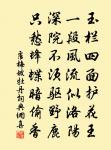 玉栏四面护花王
一段风流似洛阳
深院不须驱野鹿
只愁蜂蝶暗偷香
唐梅敏牡丹詞典偶書